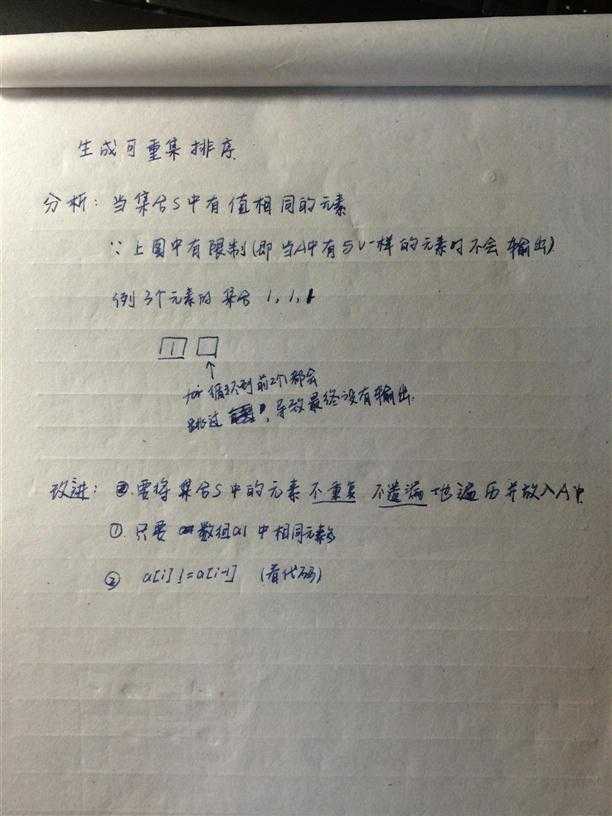 生成可重集排序
分析：当集合S中有值相同的元素
∵上图中有限制(即当A中有与V一样的元素时不会输出)
例3个元素的集合 1, 1, 1
1
for循环到前2个都会
跳过，导致最终没有输出.
改进：要将集合S中的元素不重复 不遗漏地遍历并放入A中
① 只要 数组a1中相同元素
② a[i] != a[i-1] (看代码)